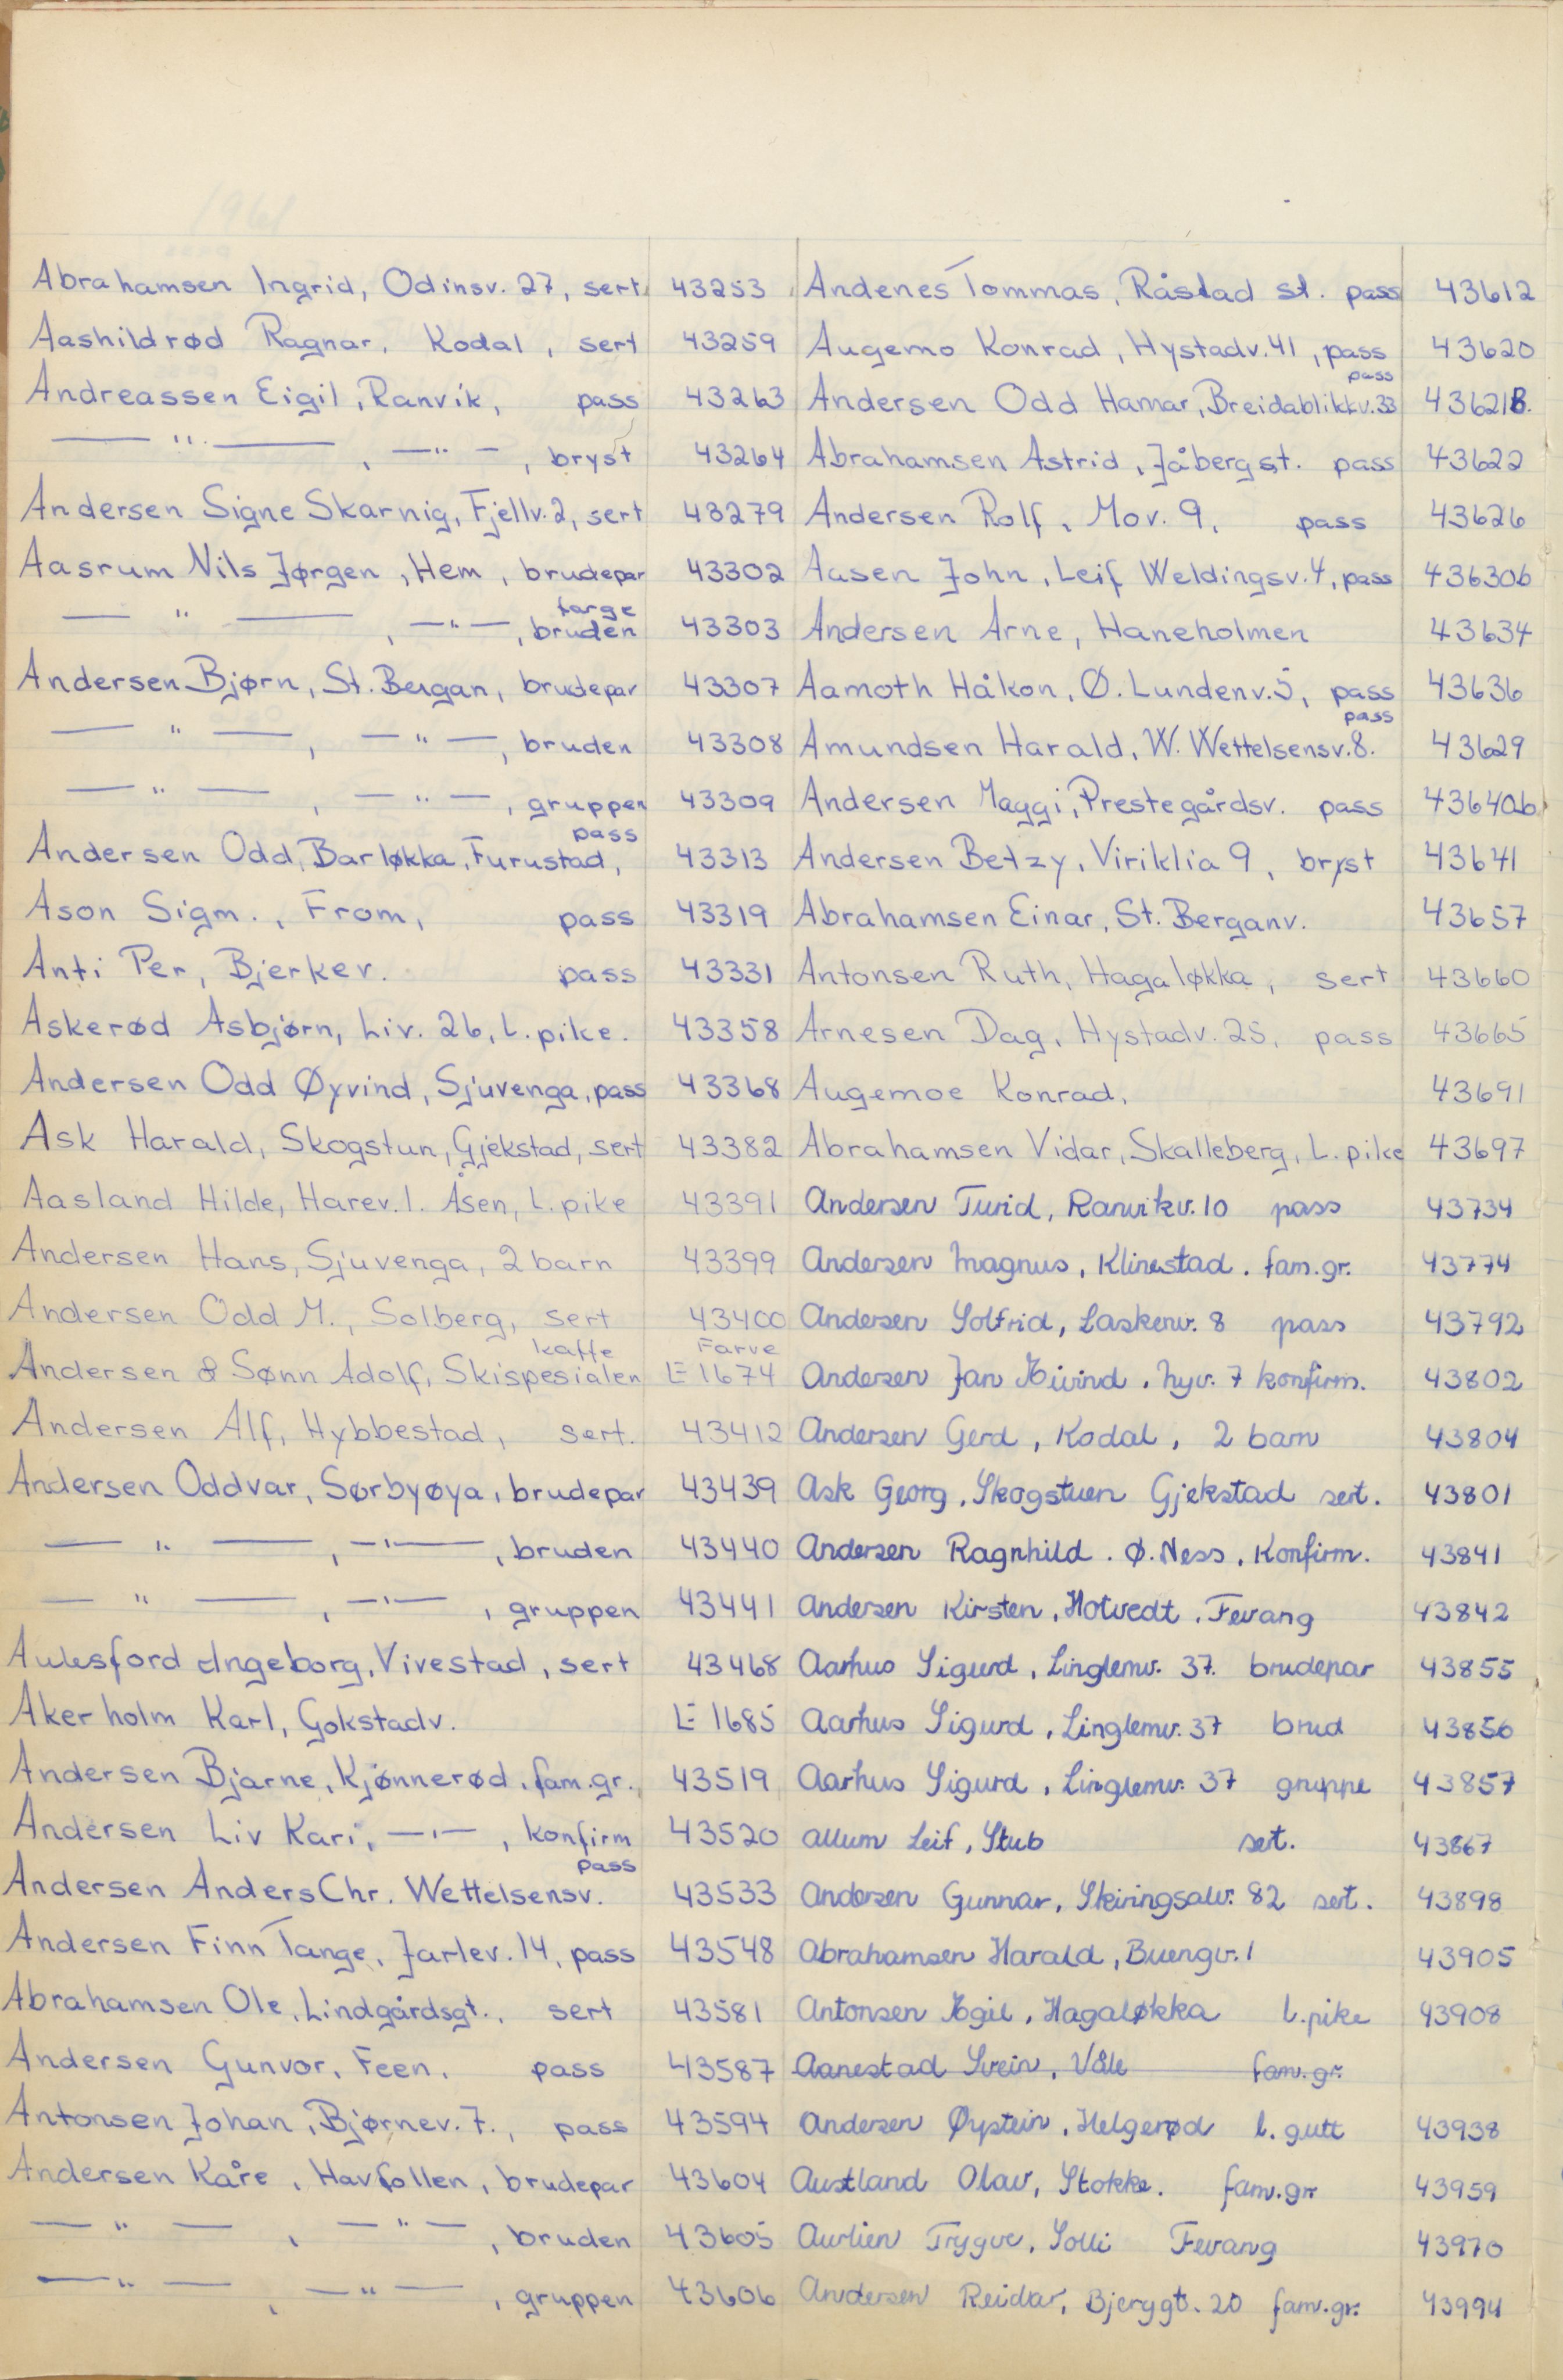 1961
Abrahamsen Ingrid, Odinsv. 27, sert. 43253
Aashildrød Ragnar, Kodal, sert 43259
Andreassen Eigil, Ranvik, pass 43263
— " —, — " —, bryst 43264
Andersen Signe Skarnig, Fjellv. 2, sert 43279
Aasrum Nils Jørgen, Hem, brudepar 43302
— " —, — " —, farge bruden 43303
Andersen Bjørn, St. Bergan, brudepar 43307
— " —, — " —, bruden 43308
— " —, — " —, gruppen 43309
Andersen Odd, Barløkka, Furustad, pass 43313
Ason Sigm., From, pass 43319
Anti Per, Bjerkev. pass 43331
Askerød Asbjørn, Liv. 26, L. pike. 43358
Andersen Odd Øyvind, Sjuvenga, pass 43368
Ask Harald, Skogstun, Gjekstad, sert 43382
Aasland Hilde, Harev. 1. Åsen, L. pike 43391
Andersen Hans, Sjuvenga, 2 barn 43399
Andersen Odd M., Solberg, sert 43400
Andersen & Sønn Adolf, Skispesialen kaffe Farve E 1674
Andersen Alf, Hybbestad, sert. 43412
Andersen Oddvar, Sørbyøya, brudepar 43439
— " —, — " —, bruden 43440
— " —, — " —, gruppen 43441
Ingeborg, Vivestad, sert 43468
Akerholm Karl, Gokstadv. E 1685
Andersen Bjarne, Kjønnerød, fam.gr. 43519
Andersen Liv Kari, — " —, konfirm 43520
Andersen Anders Chr. Wettelsensv. pass 43533
Andersen Finn Tange, Jarlev. 14, pass 43548
Abrahamsen Ole, Lindgårdsgt., sert 43581
Andersen Gunvor, Feen, pass 43587
Antonsen Johan, Bjørnev. 7., pass 43594
Andersen Kåre, Havfollen, brudepar 43604
— " —, — " —, bruden 43605
— " —, — " —, gruppen 43606
Andenes Tommas, Råstad st. pass 43612
Augemo Konrad, Hystadv. 41, pass 43620
Andersen Odd Hamar, Breidablikkv. 33 pass 43621B.
Abrahamsen Astrid, Jåberg st. pass 43622
Andersen Rolf, Mov. 9, pass 43626
Aasen John, Leif Weldingsv. 4, pass 43630b
Andersen Arne, Haneholmen 43634
Aamoth Håkon, Ø. Lundenv. 5, pass 43636
Amundsen Harald, W. Wettelsensv. 8. pass 43629
Andersen Maggi, Prestegårdsv. pass 43640b
Andersen Betzy, Viriklia 9, bryst 43641
Abrahamsen Einar, St. Berganv. 43657
Antonsen Ruth, Hagaløkka, sert 43660
Arnesen Dag, Hystadv. 25, pass 43665
Augemoe Konrad, 43691
Abrahamsen Vidar, Skalleberg, L. pike 43697
Andersen Turid, Ranvikv. 10 pass 43734
Andersen Magnus, Klinestad. fam.gr. 43774
Andersen Solfrid, Laskenv. 8 pass 43792
Andersen Jan Eivind, Nyv. 7 konfirm. 43802
Andersen Gerd, Kodal, 2 barn 43804
Ask Georg, Skogstuen Gjekstad sert. 43801
Andersen Ragnhild. Ø. Ness, Konfirm. 43841
Andersen Kirsten, Hotvedt, Fevang 43842
Aarhus Sigurd, Linglemv. 37. brudepar 43855
Aarhus Sigurd, Linglemv. 37 brud 43856
Aarhus Sigurd, Linglemv. 37 gruppe 43857
Allum Leif, Stub sert. 43867
Andersen Gunnar, Skiringsalv. 82 sert. 43898
Abrahamsen Harald, Buengv. 1 43905
Antonsen Egil, Hagaløkka l. pike 43908
Aanestad Svein, Våle fam.gr.
Andersen Øystein, Helgerød l. gutt 43938
Austland Olav, Stokke. fam.gr 43959
Aurlien Trygve, Solli Fevang 43970
Andersen Reidar, Bjerggt. 20 fam.gr. 43994